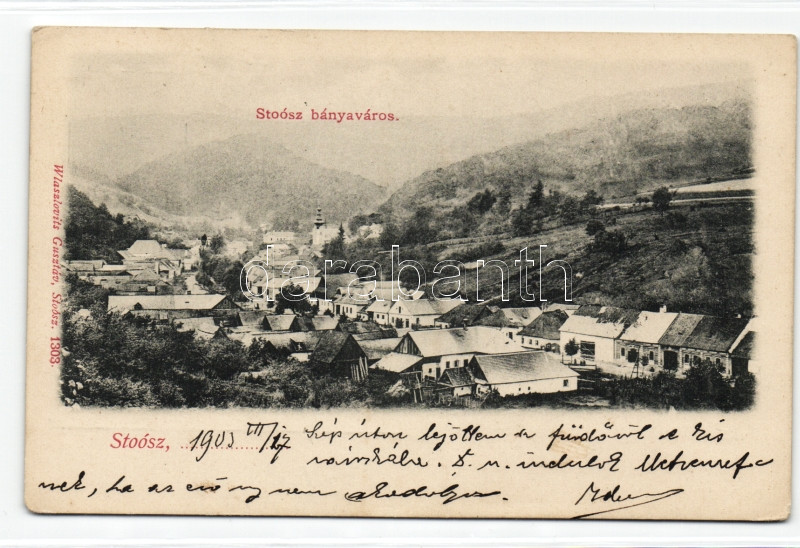 Stoósz bányaváros.
Wlaszlovits Gusztáv, Stoósz, 1303.
darabanth
Stoósz, 1903 VII/17 Szép úton lejöttem a fürdőről a kis
városkába. D. u. indulok
nek, ha az erőny nem akadályoz.